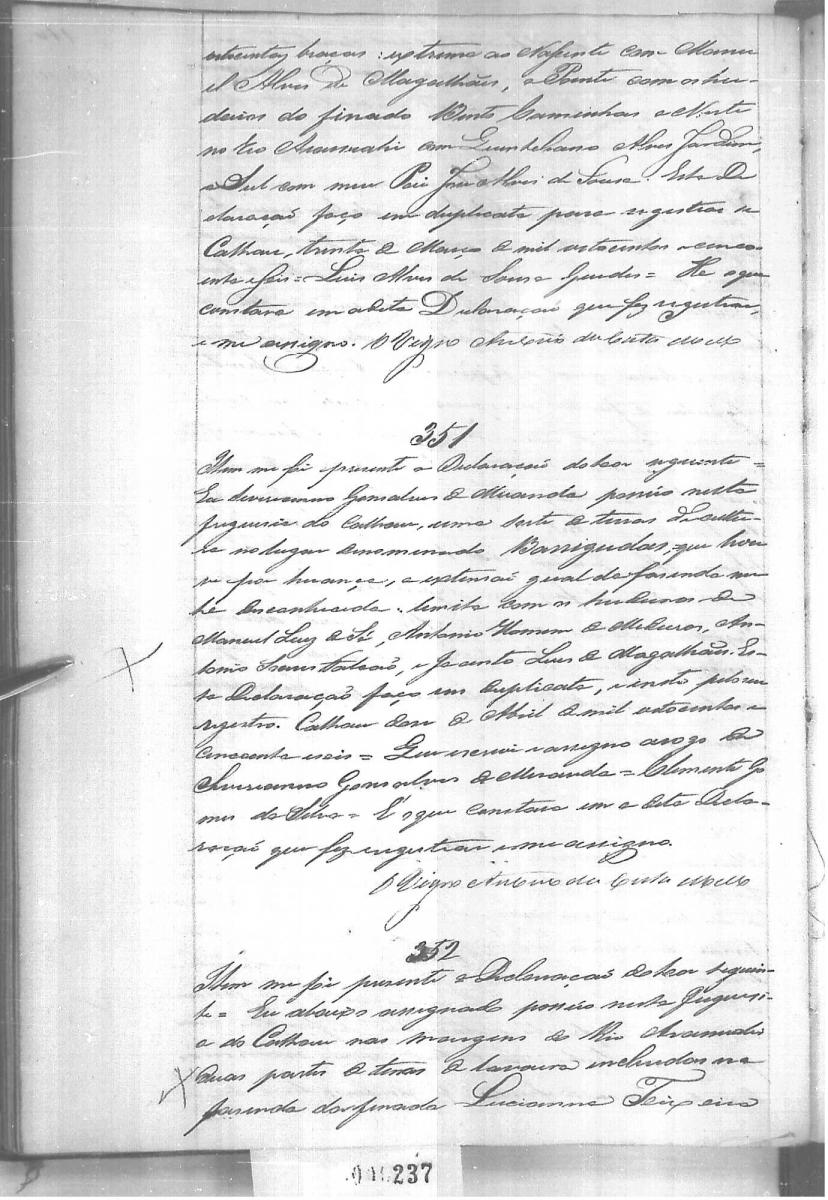 oitocentas braças: extrema ao Nascente com Mano-
el Alves de Magalhães, o Poente com os her-
deiros do finado Bento Caminhas o Norte
no Rio Arassuahi com Quinteliano Alves Jardim,
o Sul com meu Pai José Alves de Sousa. Esta De
claraçaõ faço em duplicata para registrar se
Calhau, trinta de Março de mil oitocentos e cinco-
enta e seis = Luis Alves de Sousa Guedes = He o que
constava em a dita Declaraçaõ que fiz registrar,
e me assigno. O Vigro Antonio da Costa
351
Item me foi presente a Declaraçaõ do teor seguinte =
Eu Severianno Gonsalves de Miranda possúo nesta
freguesia do Calhau, uma sorte de terras de cultu-
ra no lugar denominado Barrigudas, que houve
por herança, a extensaõ geral da fasenda me
hé desconhecida: limita com os herdeiros de
Manuel Luiz de Sá, Antonio Homem de Medeiros, An-
tonio, e Jacinto Luis de Magalhães. Es-
ta Declaração faço em duplicata, e insto pelo seu
registro. Calhau dose de Abril de mil oitocentos e
cincoenta e seis = Que escrevi e assigno a rogo de
Severianno Gonsalves de Miranda = Clemente Go
mes da Silva = E' o que constava em a dita Decla-
raçaõ que fiz registrar e me assigno.
O Vigro Antonio da Costa
352
Item me foi presente a Declaraçaõ do teor seguin-
te = Eu abaixo assignado possúo nesta Freguesi-
a do Calhau nas margens do Rio Arassuahi
duas partes de terras de lavoura incluidas na
fasenda da finada Lucianna Teixeira
237